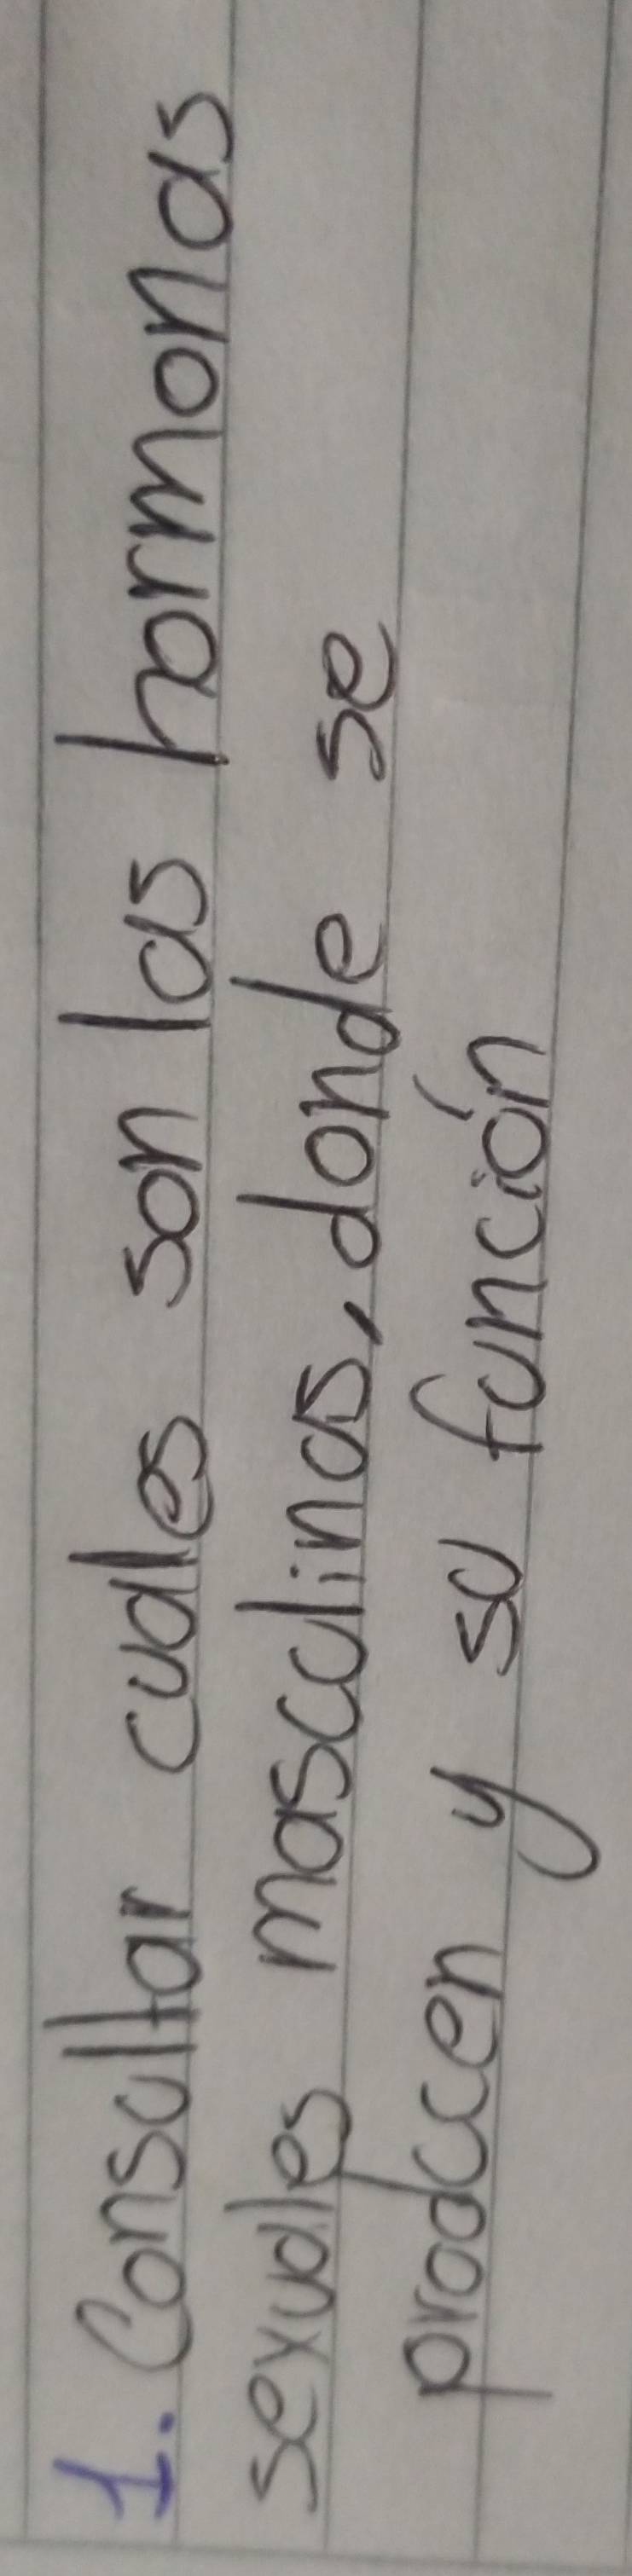 1. Consultar cuales son las hormonas
sexuales masculinas, donde se
producen y su función